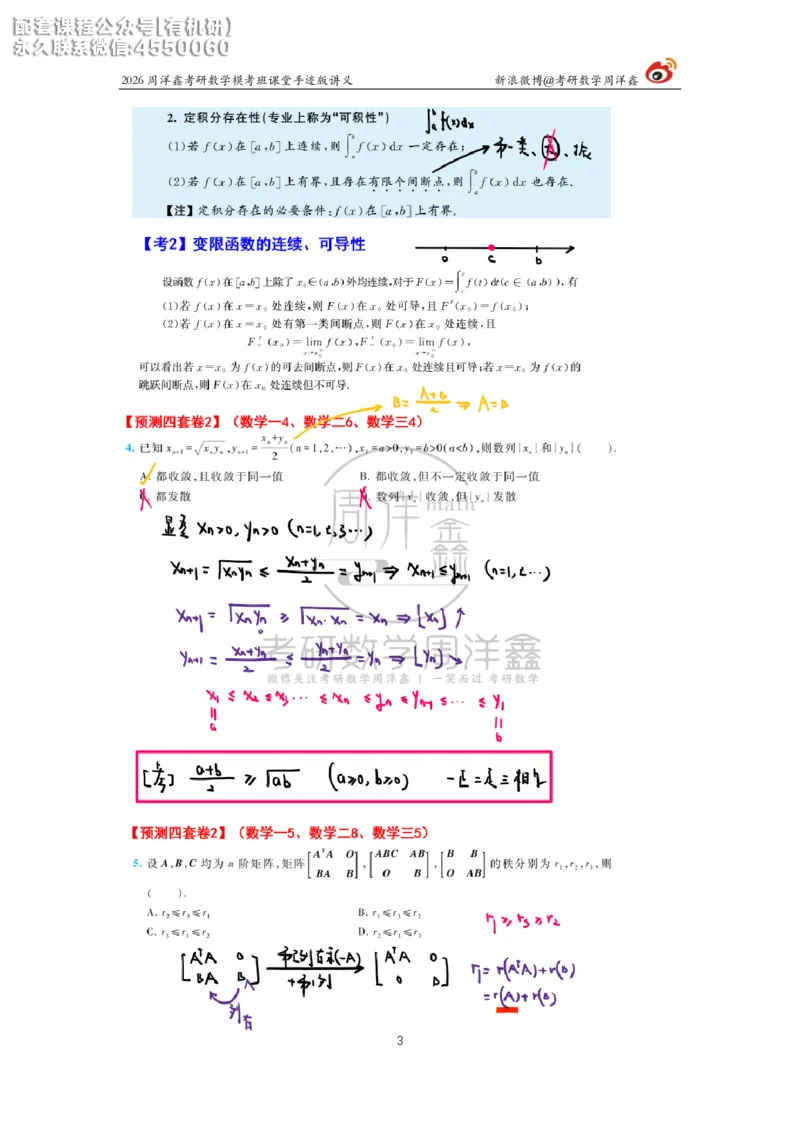 配套课程公众号[有机研)
永久联系微信:4550060
2026 周洋鑫考研数学模考班课堂手迹版讲义 新浪微博@考研数学周洋鑫
2. 定积分存在性(专业上称为“可积性”) ∫_a^b f(x)dx
(1)若 f(x)在[a,b]上连续,则∫_a^b f(x)dx 一定存在;
(2)若 f(x)在[a,b]上有界,且存在有限个间断点,则∫_a^b f(x)dx 也存在.
【注】定积分存在的必要条件:f(x)在[a,b]上有界.
【考2】变限函数的连续、可导性
a c b
设函数 f(x)在[a,b]上除了 x₀∈(a,b)外均连续,对于 F(x)=∫_c^x f(t)dt(c∈(a,b)),有
(1)若 f(x)在 x=x₀ 处连续,则 F(x)在 x₀ 处可导,且 F′(x₀)=f(x₀);
(2)若 f(x)在 x=x₀ 处有第一类间断点,则 F(x)在 x₀ 处连续,且
F′₊(x₀)=lim_{x→x₀⁺} f(x),F′₋(x₀)=lim_{x→x₀⁻} f(x),
可以看出若 x=x₀ 为 f(x)的可去间断点,则 F(x)在 x₀ 处连续且可导;若 x=x₀ 为 f(x)的
跳跃间断点,则 F(x)在 x₀ 处连续但不可导.
B= (A+B)/2 ⇒ A=B
【预测四套卷2】(数学一4、数学二6、数学三4)
4. 已知 xₙ₊₁=√(xₙyₙ),yₙ₊₁=(xₙ+yₙ)/2 (n=1,2,⋯),x₁=a>0,y₁=b>0(a<b),则数列{xₙ}和{yₙ}( ).
A. 都收敛,且收敛于同一值 B. 都收敛,但不一定收敛于同一值
C. 都发散 D. 数列{xₙ}收敛,但{yₙ}发散
周洋鑫 math
显然 xₙ>0, yₙ>0 (n=1,2,3⋯)
xₙ₊₁=√(xₙyₙ) ≤ (xₙ+yₙ)/2 = yₙ₊₁ ⇒ xₙ₊₁≤yₙ₊₁ (n=1,2⋯)
xₙ₊₁ = √(xₙyₙ) ≥ √(xₙ·xₙ) = xₙ ⇒ {xₙ}↑
考研数学周洋鑫
yₙ₊₁ = (xₙ+yₙ)/2 ≤ (yₙ+yₙ)/2 = yₙ ⇒ {yₙ}↘
微博关注考研数学周洋鑫 | 一笑而过 考研数学
x₁ ≤ x₂ ≤ x₃ ⋯ ≤ xₙ ≤ yₙ ≤ yₙ₋₁ ≤ ⋯ ≤ y₁
a
b
(a+b)/2 ≥ √ab (a≥0,b≥0) 一正二定三相等
【预测四套卷2】(数学一5、数学二8、数学三5)
5. 设 A,B,C 均为 n 阶矩阵,矩阵 [AᵀA O; BA B], [ABC AB; O B], [B B; O AB] 的秩分别为 r₁,r₂,r₃,则
( ).
A. r₂≤r₃≤r₁ B. r₁≤r₃≤r₂
C. r₃≤r₁≤r₂ D. r₂≤r₁≤r₃
r₁≥r₃≥r₂
[AᵀA 0; BA B] 第2列右乘(-A) +第1列 [AᵀA 0; 0 B]
r₁= r(AᵀA)+r(B)
= r(A)+r(B)
列右
3